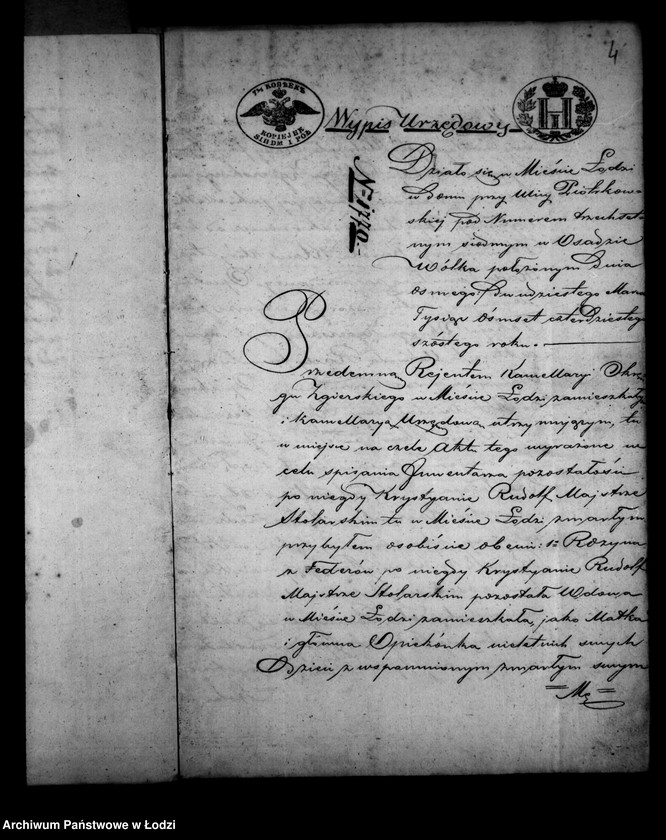 4
7½ КОПѢЕКЪ
KOPIEJEK
SIEDM I PÓŁ
Wypis Urzędowy
N= 1770.-
Działo się w Mieście Łodzi
w domu przy Ulicy Piotrkow=
skiej pod Numerem trzechset=
nym siódmym w Osadzie
Wólka położonym Dnia
osmego/Dwudziestego Marca
Tysiąc Ośmset czterdziestego
szóstego roku.
Przedemną Rejentem Kancellaryi Okrę
gu Zgierskiego w Mieście Łodzi zamieszkały
i Kancellaryą Urzędową utrzymującym, tu
w miejsce na czele Aktu tego wyrażone w
celu spisania Inwentarza pozostałości
po niegdy Krystyanie Rudolf Majstrze
Stolarskim tu w Mieście Łodzi zmarłym
przybyłem osobiście obecni: 1= Rozyna
z Federów po niegdy Krystyanie Rudolf
Majstrze Stolarskim pozostała Wdowa
w Mieście Łodzi zamieszkała, jako Matka
i główna Opiekónka nieletnich swych
Dzieci z wspomnionym zmarłym swym
= Mę =
Archiwum Państwowe w Łodzi